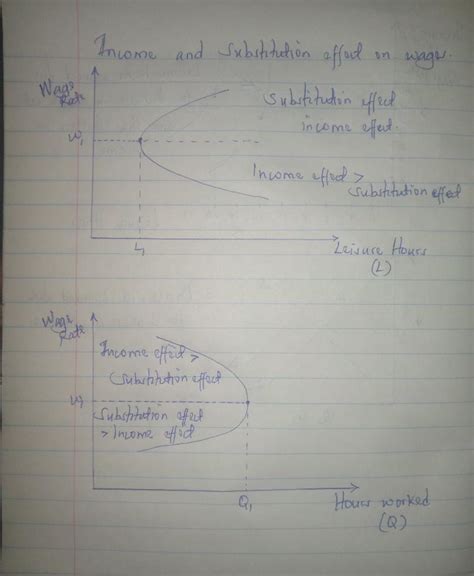 Income and Substitution effect on wages.
Wage
Rate
Substitution effect
income effect.
W₁
Income effect >
Substitution effect
L₁
Leisure Hours
(L)
Wage
Rate
Income effect >
Substitution effect
W₁
Substitution effect
> Income effect
Q₁
Hours worked
(Q)